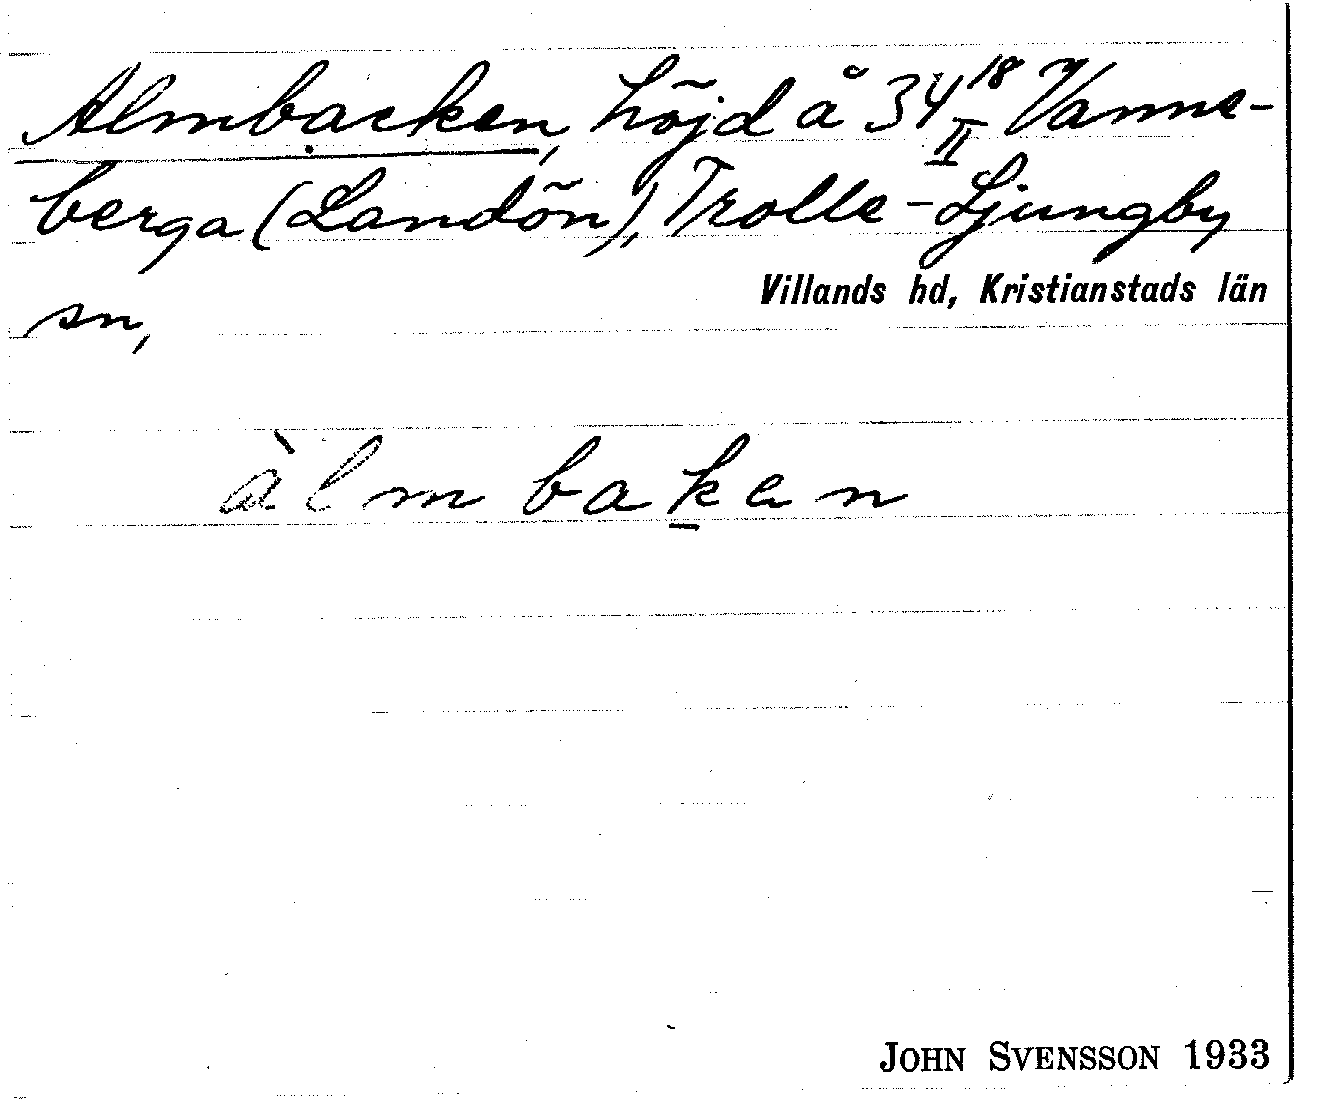 Almbacken, höjd å 34 18/II Vanne-
berga (Landön), Trolle-Ljungby
Villands hd, Kristianstads län
sn,
àlm baken
JOHN SVENSSON 1933